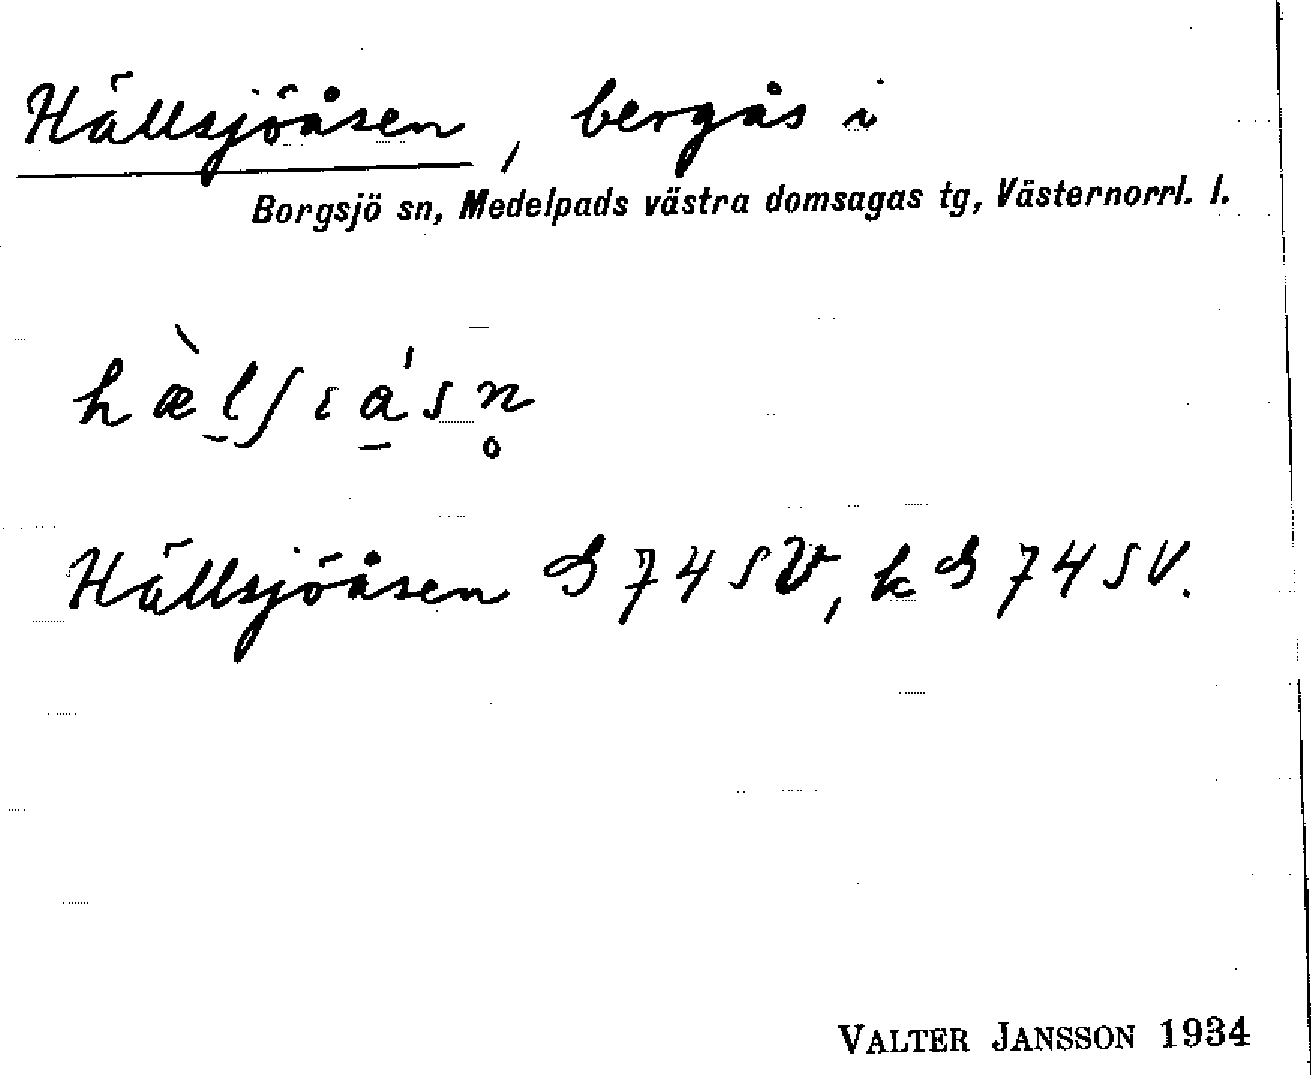 Hällsjöåsen, bergås i
Borgsjö sn, Medelpads västra domsagas tg, Västernorrl. l.
hæ̀l̠ʃɩa̠ˈsn̥
Hällsjöåsen G 74 SV, k G 74 SV.
VALTER JANSSON 1934